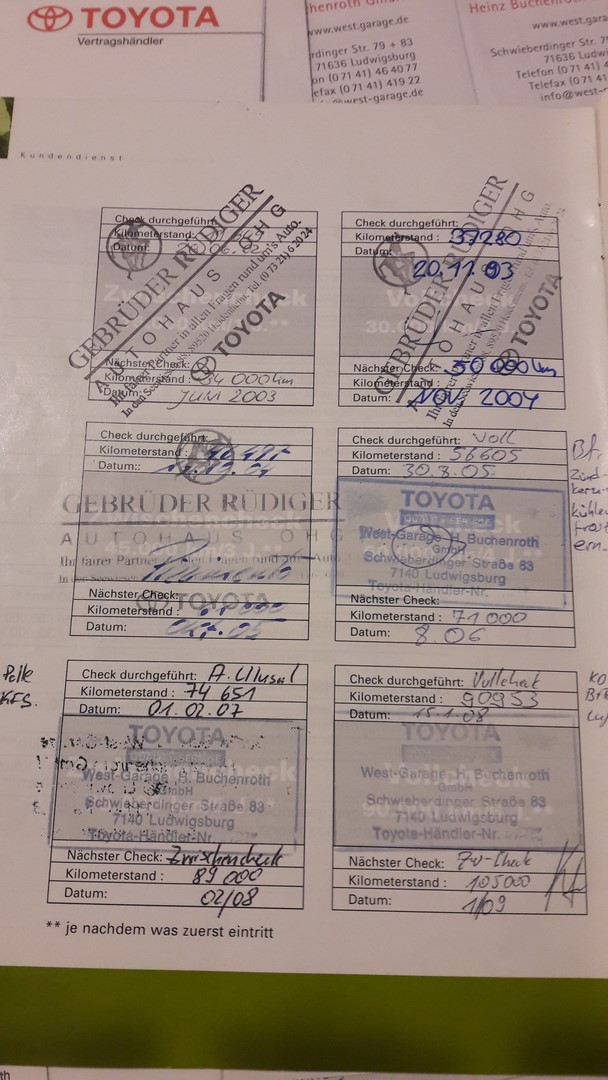 TOYOTA
Vertragshändler
www.west.garage.de
rdinger Str. 79 + 83
71636 Ludwigsburg
on (0 71 41) 46 40 77
efax (0 71 41) 4 19 22
@west-garage.de
Heinz Buchen
www.west.gara
Schwieberdinger Str. 7
71636 Ludw
Telefon (0 71 41) 4
Telefax (0 71 41)
info@west-
Kundendienst
Check durchgeführt
Kilometerstand:
Datum:
GEBRÜDER RÜDIGER
AUTOHAUS OHG
Ihr fairer Partner in allen Fragen rund um's Auto.
Tel. (0 73 21) 6 20 24
TOYOTA
Nächster Check:
Kilometerstand: 34 000 km
Datum: JUNI 2003
Check durchgeführt:
Kilometerstand : 37280
Datum: 20.11.03
GEBRÜDER RÜDIGER
AUTOHAUS OHG
Ihr fairer Partner in allen Fragen rund um's Auto.
TOYOTA
Nächster Check: 50 000 km
Kilometerstand :
Datum: NOV. 2004
Check durchgeführt:
Kilometerstand :
Datum::
GEBRÜDER RÜDIGER
AUTOHAUS OHG
Ihr fairer Partner in allen Fragen rund um's Auto
TOYOTA
Nächster Check:
Kilometerstand :
Datum: Okt. 05
Check durchgeführt: Voll
Kilometerstand : 56605
Datum: 30.8.05
TOYOTA
West-Garage H. Buchenroth
GmbH
Schwieberdinger Straße 83
7140 Ludwigsburg
Toyota-Händler-Nr.
Nächster Check:
Kilometerstand : 71000
Datum: 8.06
Bf.
Kühler
Frost
ern.
Check durchgeführt:
Kilometerstand : 74 651
Datum: 01.02.07
TOYOTA
West-Garage H. Buchenroth
GmbH
Schwieberdinger Straße 83
7140 Ludwigsburg
Toyota-Händler-Nr
Nächster Check: Zwischencheck
Kilometerstand : 89 000
Datum: 02/08
Check durchgeführt: Vollcheck
Kilometerstand : 90953
Datum: 15.1.08
TOYOTA
West-Garage H. Buchenroth
GmbH
Schwieberdinger Straße 83
7140 Ludwigsburg
Toyota-Händler-Nr.
Nächster Check: Zw-Check
Kilometerstand : 105000
Datum: 1/09
** je nachdem was zuerst eintritt